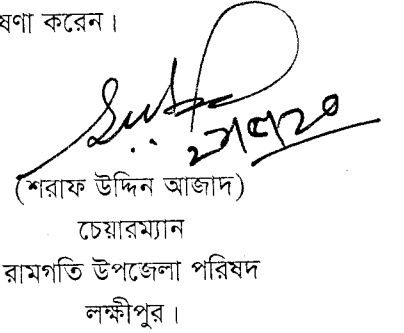 ষণা করেন।
(শরাফ উদ্দিন আজাদ)
চেয়ারম্যান
রামগতি উপজেলা পরিষদ
লক্ষীপুর।